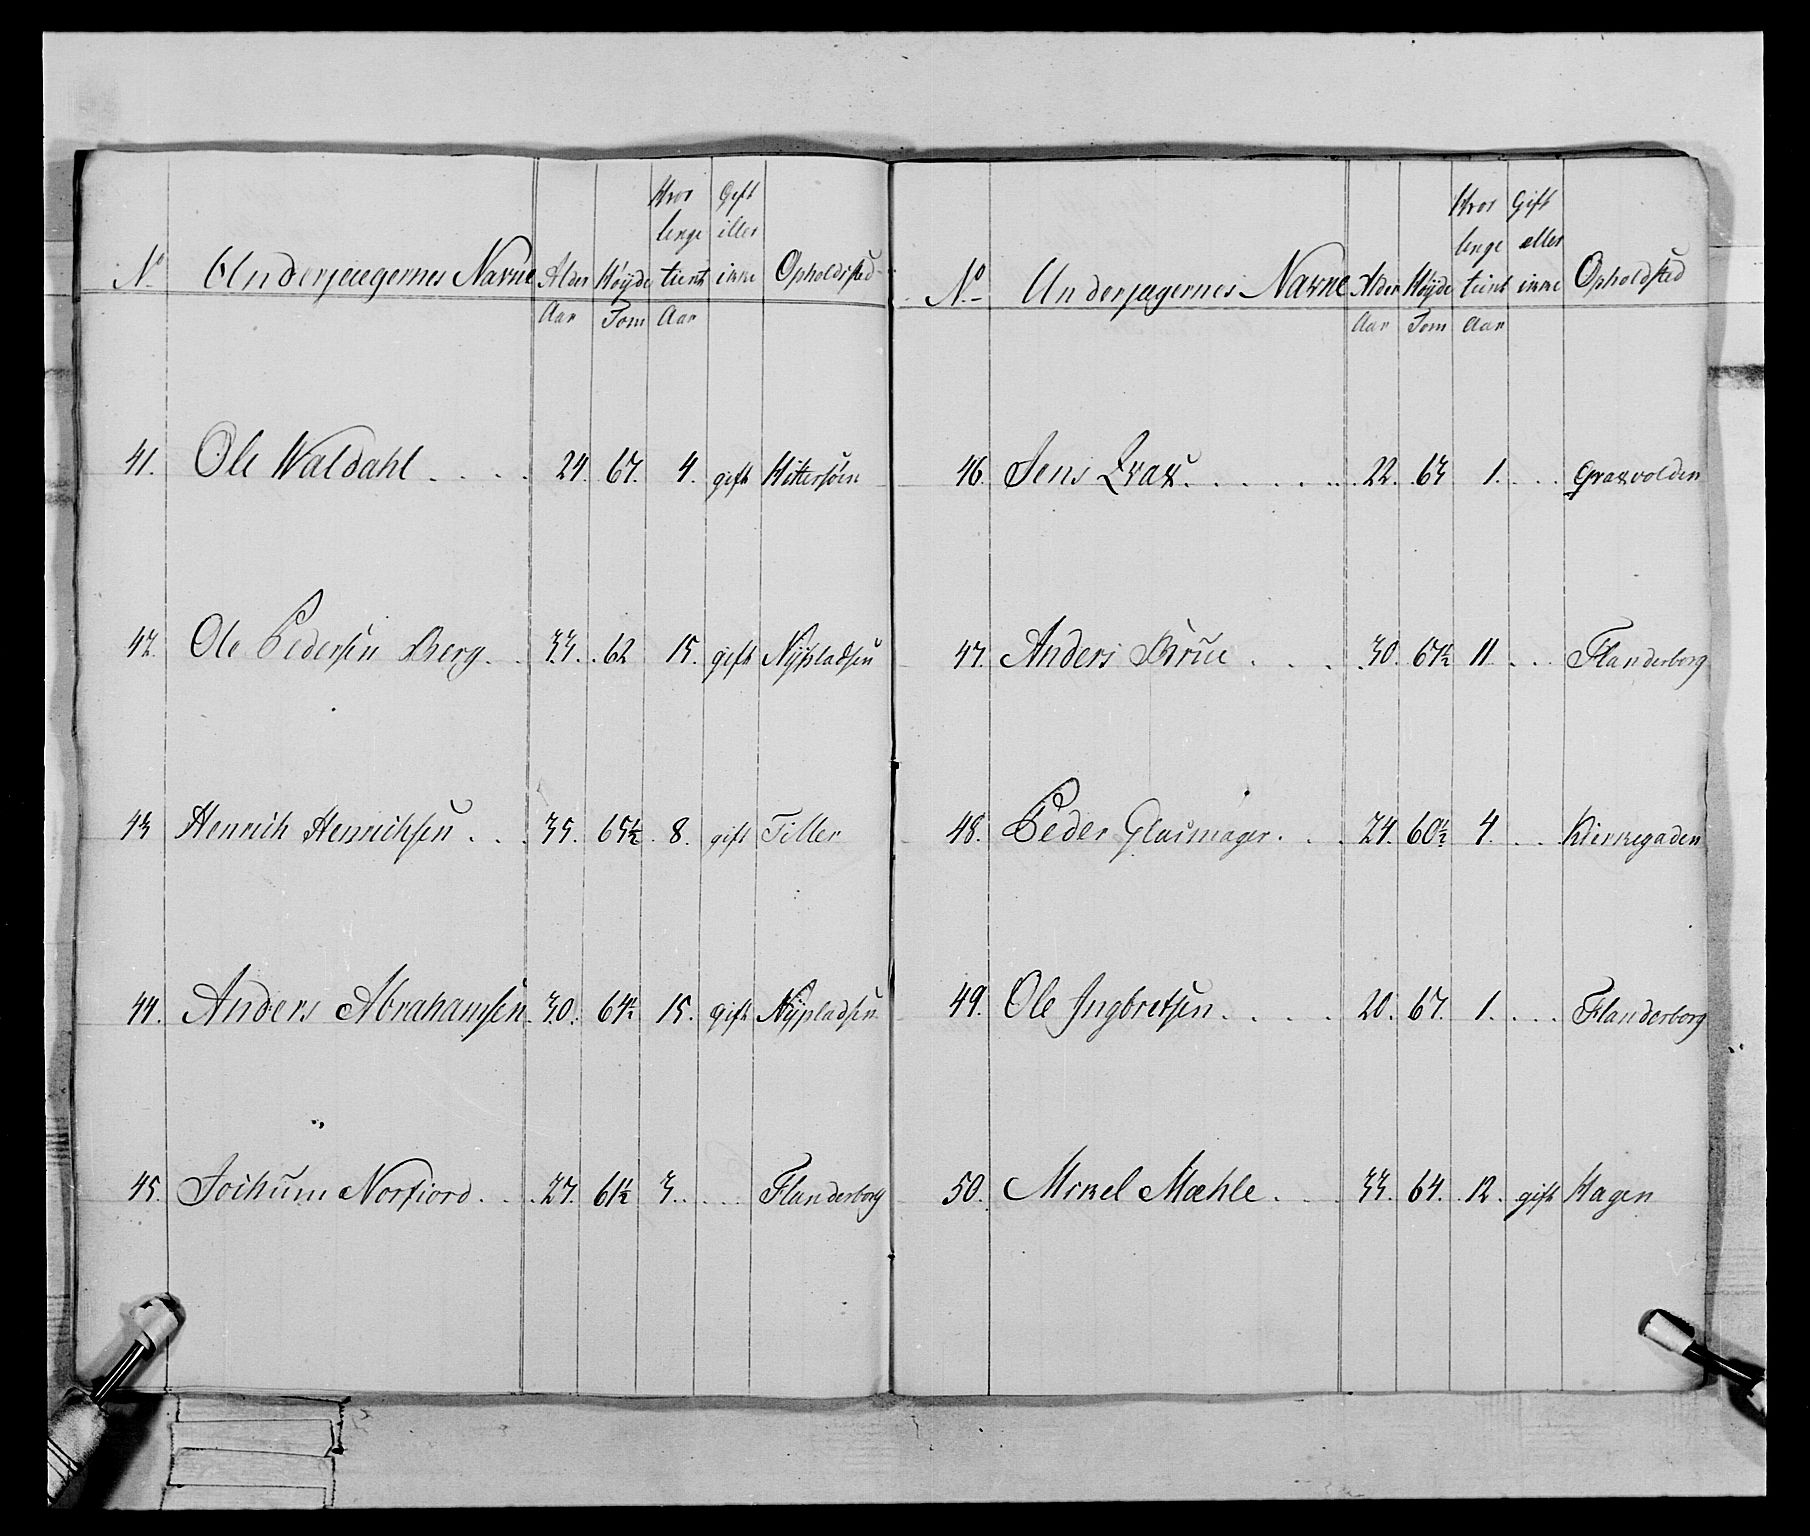 No Underjægernes Navne Alder Høyde Hvor lenge tient Gift eller ikke Opholdsted
Aar Tom Aar
41. Ole Waldahl . . . . 24. 67. 4. gift Hittersøen
42. Ole Pedersen Berg. . 33. 62 15. gift Nÿpladsen
43 Henrich Henrichsen . . . 35. 65½ 8. gift Tiller
44. Anders Abrahamsen 30. 64½ 15. gift Nÿpladsen
45. Jochum Norfiord . . . 27. 61½ 3. . . Flanderborg
No Underjægernes Navne Alder Høyde Hvor lenge tient Gift eller ikke Opholdsted
Aar Tom Aar
46. Jens . . . . . . 22. 63 1. . . Graxvolden
47. Anders Brue . . . . 30. 61½ 11. . . Flanderborg
48. Peder Glasmager. . . 24. 60½ 4. . . Kierkegaden
49. Ole Ingbretsen . . . . 20. 67. 1. . . . Flanderborg
50. Mikel Mæhle . . . 33. 64. 12. gift Hagen